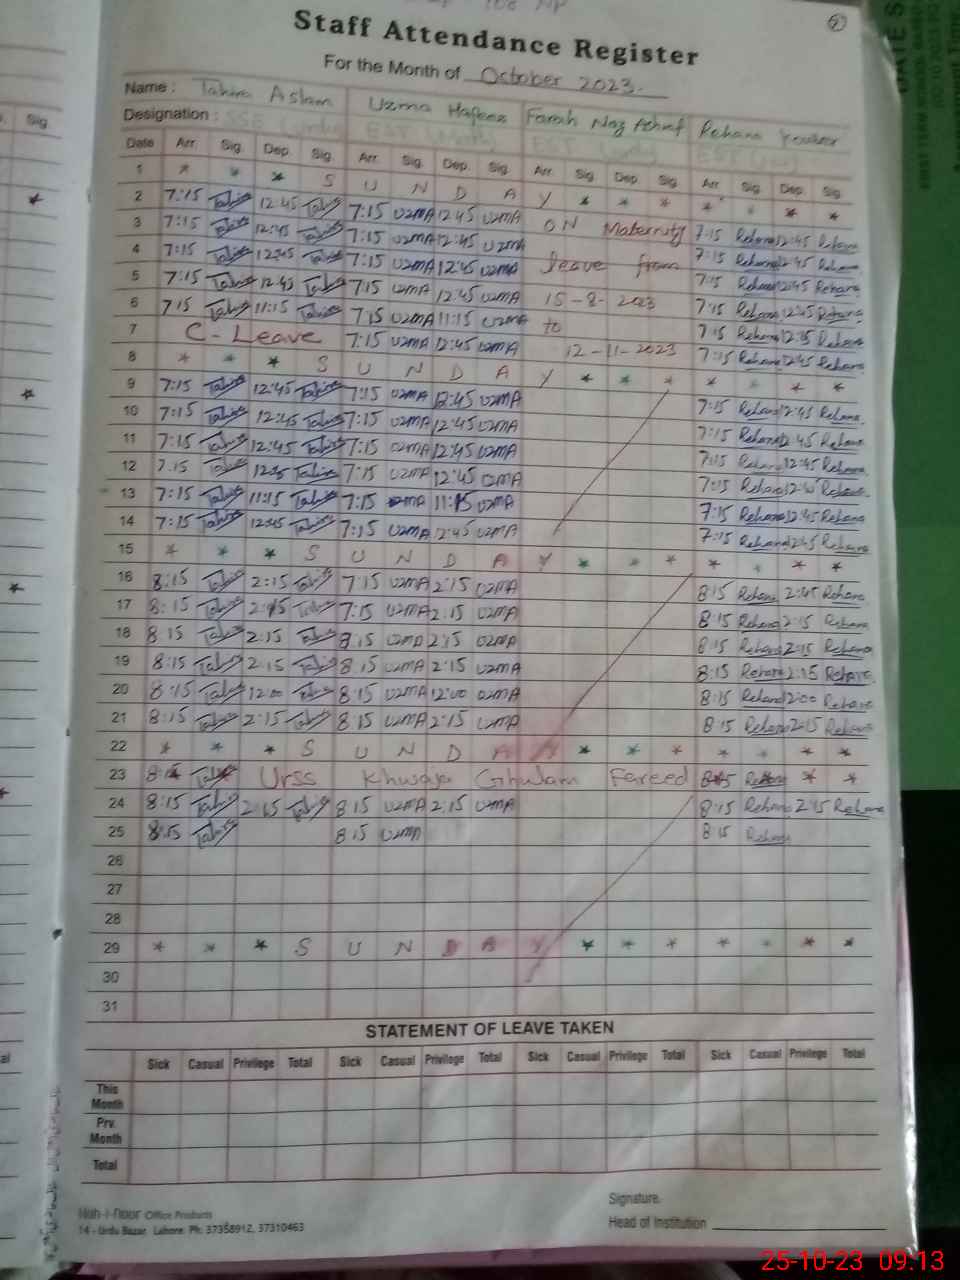 Staff Attendance Register
For the Month of October 2023.
Name : Tahira Aslam Uzma Hafeez Farah Naz Ashraf Rehana
Designation : SSE EST EST EST
Date Arr. Sig. Dep. Sig. Arr. Sig. Dep. Sig. Arr. Sig. Dep. Sig. Arr. Sig. Dep. Sig.
1 * * * S U N D A Y * * * * * * *
2 7:15 Tahira 12:45 Tahira 7:15 UzmA 12:45 UzmA ON Maternity 7:15 Rehana 12:45 Rehana
3 7:15 Tahira 12:45 Tahira 7:15 UzmA 12:45 UzmA leave from 7:15 Rehana 12:45 Rehana
4 7:15 Tahira 12:45 Tahira 7:15 UzmA 12:45 UzmA 15-8-2023 7:15 Rehana 12:45 Rehana
5 7:15 Tahira 12:45 Tahira 7:15 UzmA 12:45 UzmA to 7:15 Rehana 12:45 Rehana
6 7:15 Tahira 11:15 Tahira 7:15 UzmA 11:15 UzmA 12-11-2023 7:15 Rehana 12:15 Rehana
7 C-Leave 7:15 UzmA 12:45 UzmA 7:15 Rehana 12:45 Rehana
8 * * * S U N D A Y * * * * * * *
9 7:15 Tahira 12:45 Tahira 7:15 UzmA 12:45 UzmA 7:15 Rehana 12:45 Rehana
10 7:15 Tahira 12:45 Tahira 7:15 UzmA 12:45 UzmA 7:15 Rehana 12:45 Rehana
11 7:15 Tahira 12:45 Tahira 7:15 UzmA 12:45 UzmA 7:15 Rehana 12:45 Rehana
12 7:15 Tahira 12:45 Tahira 7:15 UzmA 12:45 UzmA 7:15 Rehana Rehana
13 7:15 Tahira 11:15 Tahira 7:15 UzmA 11:15 UzmA 7:15 Rehana 12:45 Rehana
14 7:15 Tahira 12:45 Tahira 7:15 UzmA 12:45 UzmA 7:15 Rehana 12:45 Rehana
15 * * * S U N D A Y * * * * * * *
16 8:15 Tahira 2:15 Tahira 7:15 UzmA 2:15 UzmA 8:15 Rehana 2:45 Rehana
17 8:15 Tahira 2:15 Tahira 7:15 UzmA 2:15 UzmA 8:15 Rehana 2:15 Rehana
18 8:15 Tahira 2:15 Tahira 8:15 UzmA 2:15 UzmA 8:15 Rehana 2:15 Rehana
19 8:15 Tahira 2:15 Tahira 8:15 UzmA 2:15 UzmA 8:15 Rehana 2:15 Rehana
20 8:15 Tahira 12:00 Tahira 8:15 UzmA 12:00 UzmA 8:15 Rehana 12:00 Rehana
21 8:15 Tahira 2:15 Tahira 8:15 UzmA 2:15 UzmA 8:15 Rehana 2:15 Rehana
22 * * * S U N D A Y * * * * * * *
23 8:15 Urss Khwaja Ghulam Fareed 8:15 Rehana * *
24 8:15 Tahira 2:15 Tahira 8:15 UzmA 2:15 UzmA 8:15 Rehana 2:15 Rehana
25 8:15 Tahira 8:15 UzmA 8:15 Rehana
26
27
28
29 * * * S U N D A Y * * * * * * *
30
31
STATEMENT OF LEAVE TAKEN
Sick Casual Privilege Total Sick Casual Privilege Total Sick Casual Privilege Total Sick Casual Privilege Total
This Month
Prv. Month
Total
Noh-i-Noor Office Products
14 - Urdu Bazar, Lahore. Ph: 37358912, 37310463
Signature.
Head of Institution
25-10-23 09.13